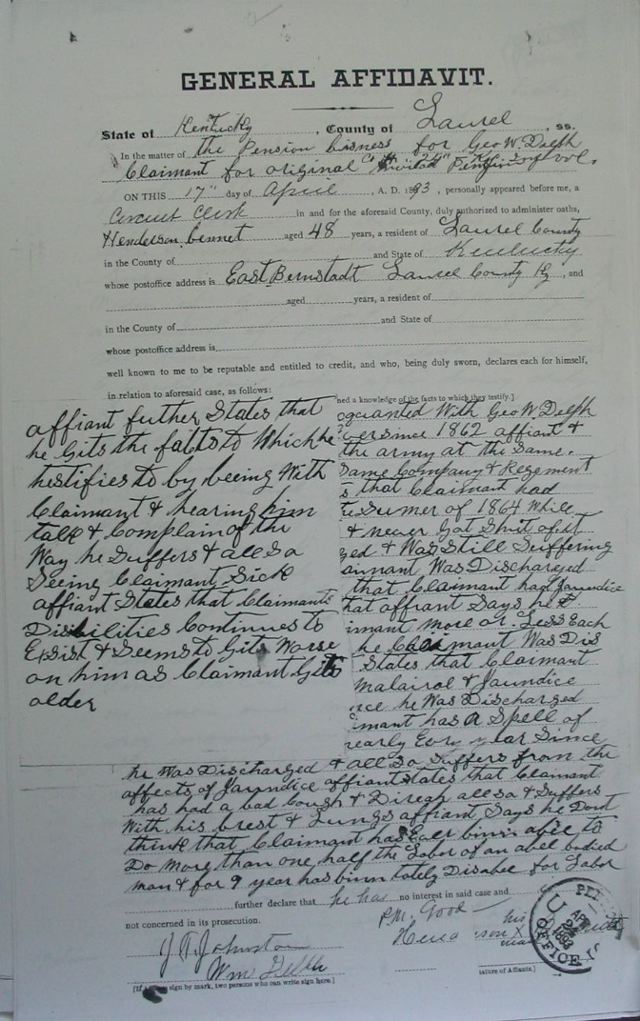 GENERAL AFFIDAVIT.
State of Kentucky, County of Laurel, ss.
In the matter of the Pension bisness for Geo W. Delph
Claimant for original
ON THIS 17" day of April, A. D. 1893, personally appeared before me, a
Circuit Clerk in and for the aforesaid County, duly authorized to administer oaths,
Henderson aged 48 years, a resident of Laurel County
in the County of and State of Kentucky
whose postoffice address is East Bernstadt Laurel County Ky, and
aged years, a resident of
in the County of and State of
whose postoffice address is
well known to me to be reputable and entitled to credit, and who, being duly sworn, declares each for himself,
in relation to aforesaid case, as follows:
ned a knowledge of the facts to which they testify.]
affiant futher States that
he Gits the facts to Which he
testifies to by beeing With
Claimant & hearing him
talk & Complain of the
Way he Suffers & allso
Seeing Claimant Sick
affiant States that Claimants
Disibilities Continues to
Exsist & Seems to Gits Worse
on him as Claimant Gits
older
oquanted With Geo W Delph
ver since 1862 affiant &
the army at the Same
Same Company & Regement
s that Claimant had
Sumer of 1864 While
& never Got Shut of it
ged & Was Still Suffering
Was Discharged
that Claimant had Jaundice
hat affiant Says he
imant more or Less Each
he Claimant Was Dis
States that Claimant
Malairol & Jaundice
nce he Was Discharged
imant has a Spell of
nearly Evry year Since
he Was Discharged & allso Suffers from the
affects of Jaundice affiant States that Claimant
has had a bad Cough & Direah allso & Suffers
With his brest & Lungs affiant Says he Dont
think that Claimant has Ever bin abel to
Do More than one half the Labor of an abel bodied
man & for 9 year has binn totely Disabel for Labor
further declare that he has no interest in said case and
not concerned in its prosecution.
P.M. Good
his
J. T. Johnston
Wm Delph
[If sign by mark, two persons who can write sign here.]
ature of Affiants.]
U.S.
OFFICE